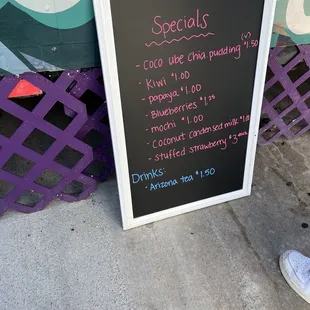 Specials
(v)
- coco ube chia pudding $1.50
- Kiwi $1.00
- papaya $1.00
- Blueberries $1.25
- mochi $1.00
- Coconut condensed milk $1.00
- stuffed strawberry $3 each
Drinks:
- Arizona tea $1.50